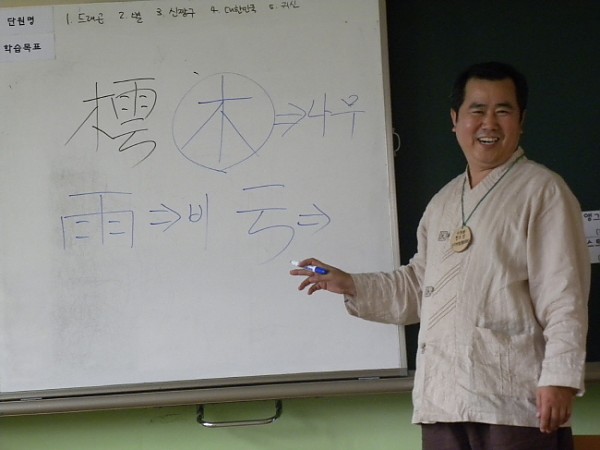 단원명 1. 드래곤 2. 별 3. 4. 대한민국 5. 귀신
학습목표
樗 木 ⇒ 나무
雨 ⇒ 비 亏 ⇒
앵그
스트